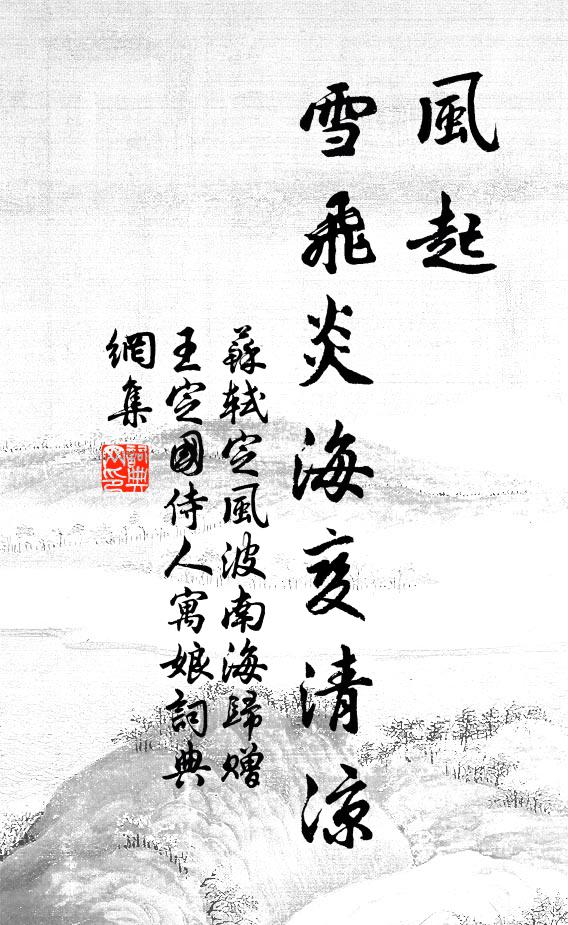 風起
雪飛炎海变清涼
蘇軾定風波南海歸赠
王定國侍人寓娘詞典
網集
詞典
网印